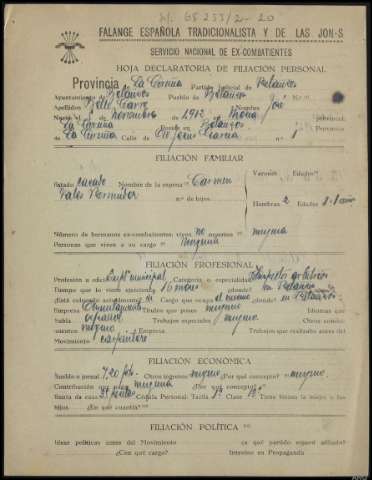 FALANGE ESPAÑOLA TRADICIONALISTA Y DE LAS JON-S
SERVICIO NACIONAL DE EX-COMBATIENTES
HOJA DECLARATORIA DE FILIACIÓN PERSONAL
Provincia La Coruña Partido judicial de Betanzos
Ayuntamiento de Betanzos Pueblo de Betanzos
Apellidos Nombre José
Nació el de noviembre de 1912
La Coruña Reside en Betanzos Provincia
de La Coruña Calle de García n.º 1
FILIACIÓN FAMILIAR
Estado casado Nombre de la esposa Carmen Varones Edades
n.º de hijos Hembras 2 Edades
Número de hermanos ex-combatientes: vivos no muertos ninguno
Personas que viven a su cargo ninguna
FILIACIÓN PROFESIONAL
Profesión u oficio municipal Categoría o especialidad Inspector arbitrios
Tiempo que lo viene ejerciendo 16 meses ¿dónde? en Betanzos
¿Está colocado actualmente? Cargo que ocupa el mismo ¿dónde? en Betanzos
Empresa Ayuntamiento Títulos que posee ninguno Idiomas que
habla español Trabajos especiales ninguno Otros conocimientos
ninguno Empresa Trabajos que realizaba antes del
Movimiento carpintero
FILIACIÓN ECONÓMICA
Sueldo o jornal 7,20 pts. Otros ingresos ninguno ¿Por qué concepto? ninguno.
Contribución que paga ninguna ¿Por qué concepto?
Renta de casa Cédula Personal. Tarifa 1ª Clase Tiene bienes la mujer o los
hijos. ¿En qué cuantía?
FILIACIÓN POLÍTICA
Ideas políticas antes del Movimiento ¿a qué partido estuvo afiliado?
¿Con qué cargo? Intervino en Propaganda